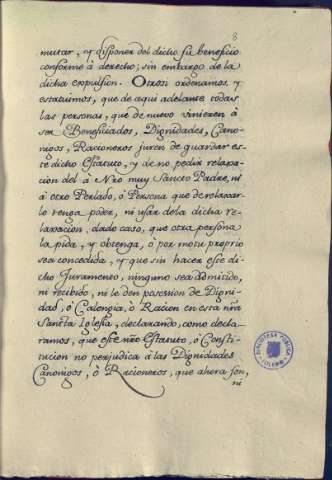 8
mutar, y disponer del dicho su beneficio
conforme á derecho; sin embargo de la
dicha expulsion. Otrosi ordenamos, y
estatuimos, que de aqui adelante todas
las personas, que de nuevo vinieren á
ser Beneficiados, Dignidades, Cano-
nigos, Racioneros juren de guardar es-
te dicho Estatuto, y de no pedir relaxa-
cion del á Nrõ muy Sancto Padre, ni
á otro Perlado, ò Persona que de relaxar-
lo tenga poder, ni usar de la dicha re-
laxacion, dado caso, que otra persona
la pida, y obtenga, ò por motu proprio
sea concedida, y que sin hacer este di-
cho Juramento, ninguno sea admitido,
ni recibido, ni le den possesion de Digni-
dad, ò Calongia, ò Racion en esta nrã
Sancta Iglesia, declarando, como decla-
ramos, que este nrõ Estatuto, ò Consti-
tucion no perjudica á las Dignidades
Canonigos, ò Racioneros, que ahora son,
ni
BIBLIOTECA PUBLICA
TOLEDO